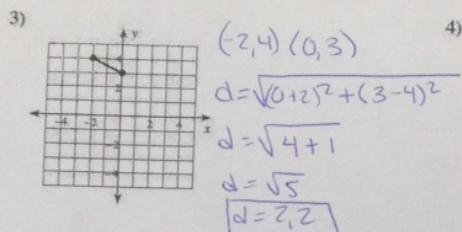 3)
4)
y
x
-4 -2 2 4
2
-2
-4
(-2,4) (0,3)
d=√(0+2)²+(3-4)²
d=√4+1
d=√5
d=2,2